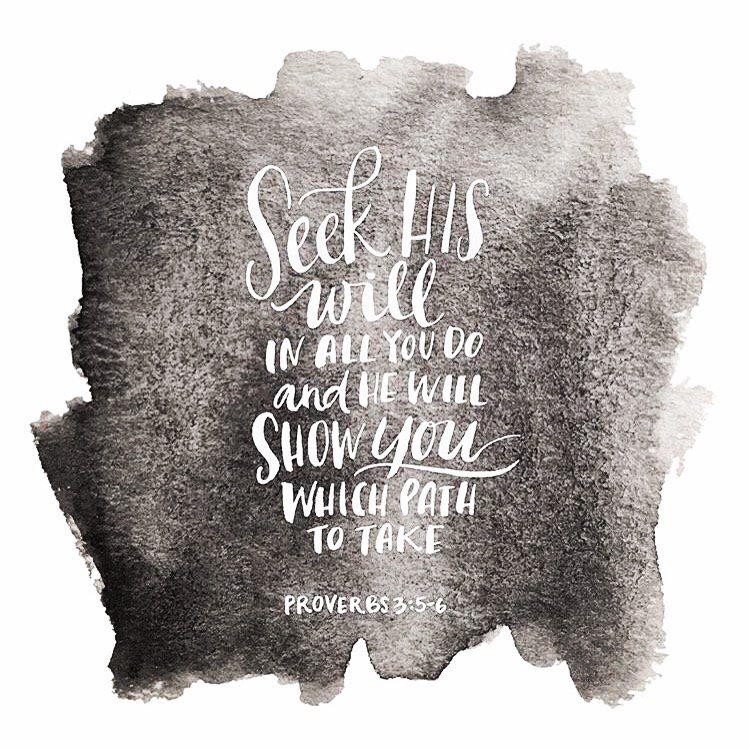 Seek HIS
will
IN ALL YOU DO
and HE WILL
SHOW you
WHICH PATH
TO TAKE
PROVERBS 3:5-6